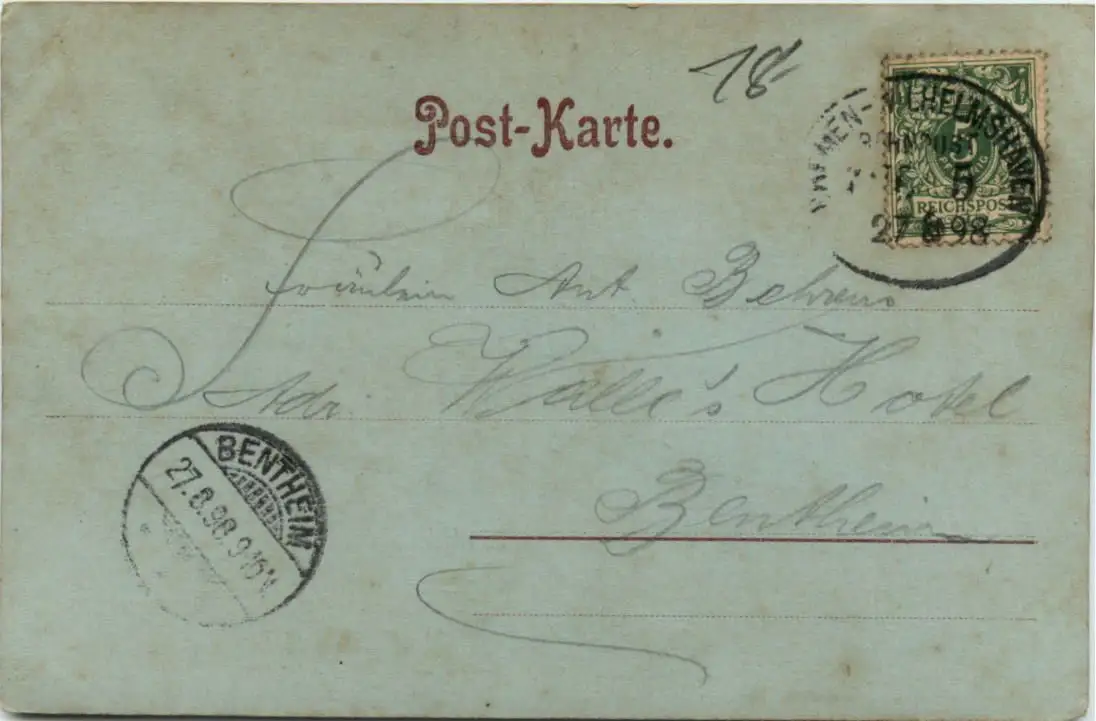 18-
Post-Karte.
BREMEN-WILHELMSHAVEN
BAHNPOST
5
27 8 98
5
PFENNIG
REICHSPOST
Fräulein Ant. Behrens
Adr. Walle's Hotel
Bentheim
BENTHEIM
27.8.98.9-10V.